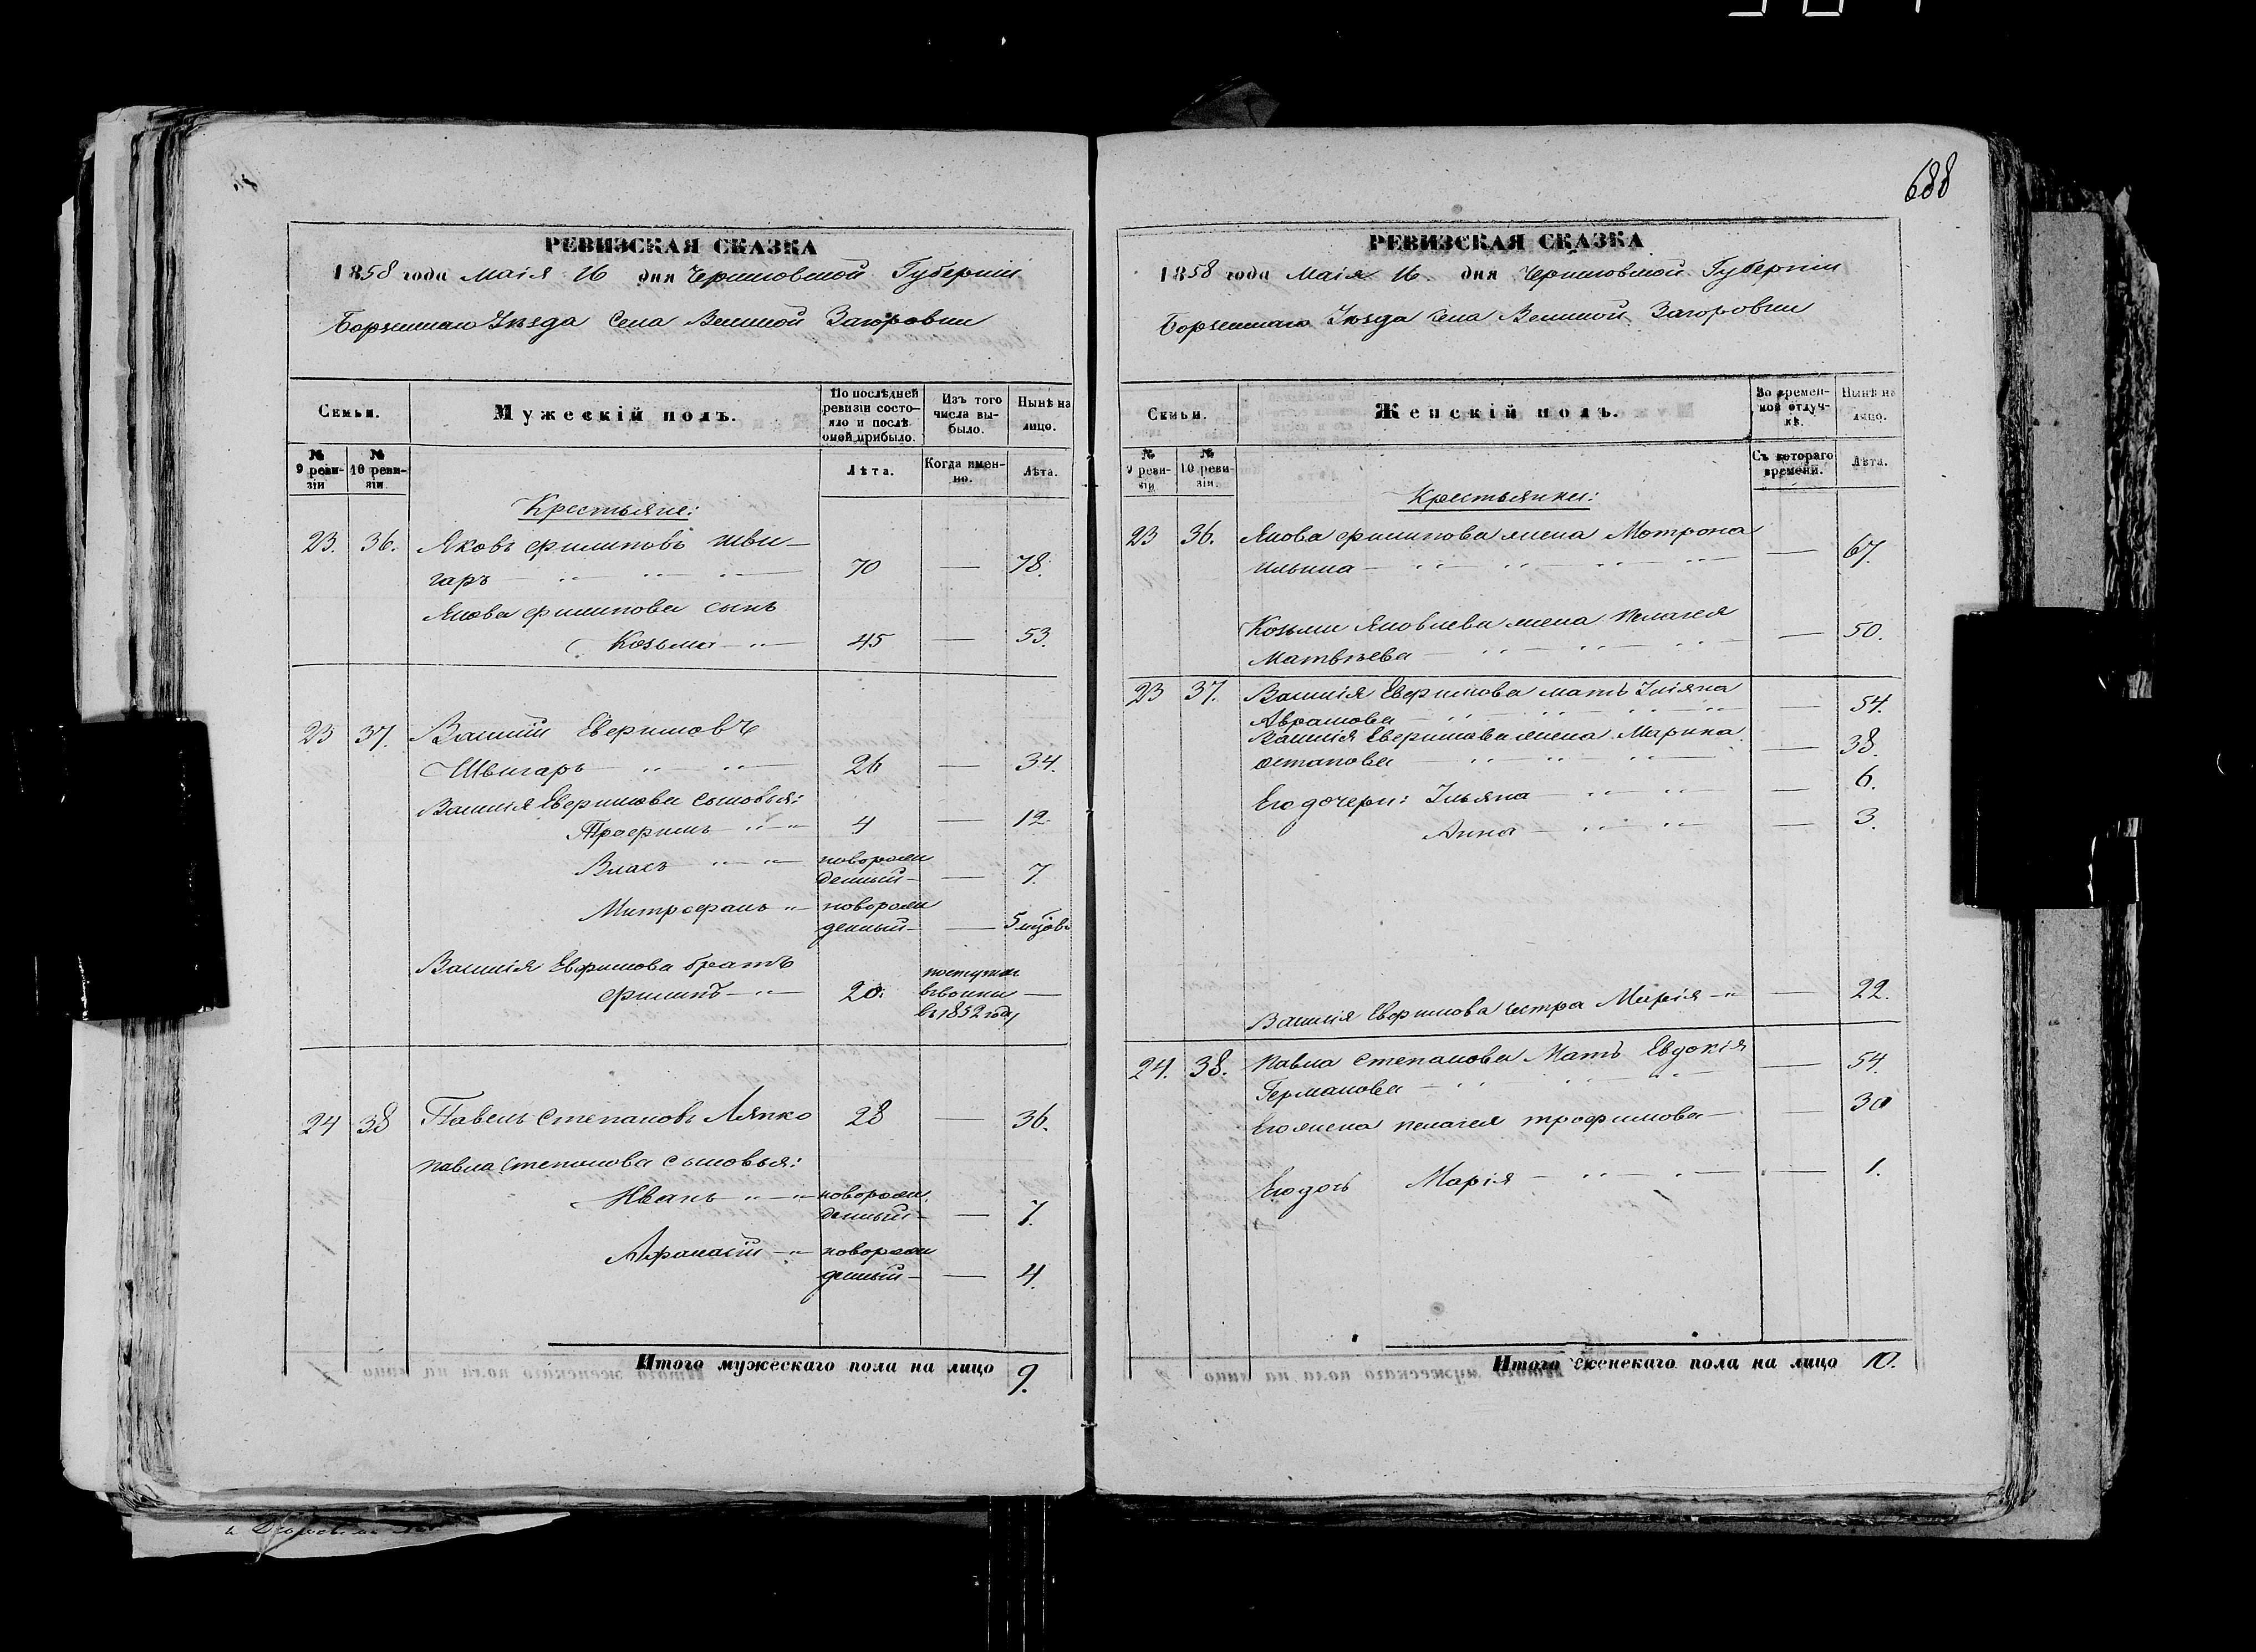 РЕВИЗСКАЯ СКАЗКА
1858 года Маія 16 дня Черниговской Губерніи
Борзенскаго Уѣзда Села Великой Загоровки
Семьи.
Мужескій полъ.
По послѣдней ревизіи состояло и послѣ оной прибыло.
Изъ того числа выбыло.
Нынѣ на лицо.
№ 9 ревизіи
№ 10 ревизіи.
Лѣта.
Когда именно.
Лѣта.
Крестьяне:
23. 36. Яковъ Филиповъ Шви-
гаръ 70 — 78.
Якова Филипова сынъ
Козьма 45 — 53.
23 37. Василій Евфимовъ
Швигаръ 26 — 34.
Василія Евфимова сыновья:
Трофимъ 4 — 12.
Власъ новорож
денный — 7.
Митрофанъ новорож
денный — 5 мцовъ
Василія Евфимова братъ
Филипъ 20. поступил
в воины —
въ 1852 году
24 38 Павелъ Степановъ Ляпко 28 — 36.
Павла Степанова сыновья:
Иванъ новорож
денный — 7.
Афанасій новорож
денный — 4.
Итого мужескаго пола на лицо 9.
688
РЕВИЗСКАЯ СКАЗКА
1858 года Маія 16 дня Черниговской Губерніи
Борзенскаго Уѣзда Села Великой Загоровки
Семьи.
Женскій полъ.
Во временной отлучкѣ.
Нынѣ на лицо.
№ 9 ревизіи
№ 10 ревизіи.
Съ котораго времени.
Лѣта.
Крестьянки:
23 36. Якова Филипова жена Мотрона
Ильина — 67.
Козьми Яковлева жена Пелагея
Матвѣева — 50.
23 37. Василія Евфимова мать Уліяна
Аврамова — 54.
Василія Евфимова жена Марина
Остапова — 38.
Его дочери: Ульяна — 6.
Анна — 3.
Василія Евфимова сестра Марія — 22.
24. 38. Павла Степанова Мать Евдокія
Германова — 54.
Его жена Пелагея Трофимова — 30
Его дочь Марія — 1.
Итого женскаго пола на лицо 10.